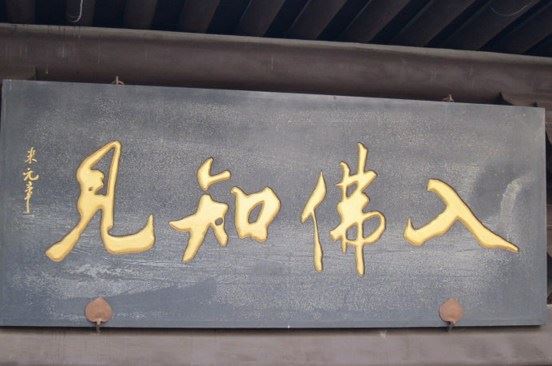 入佛知見
米元章